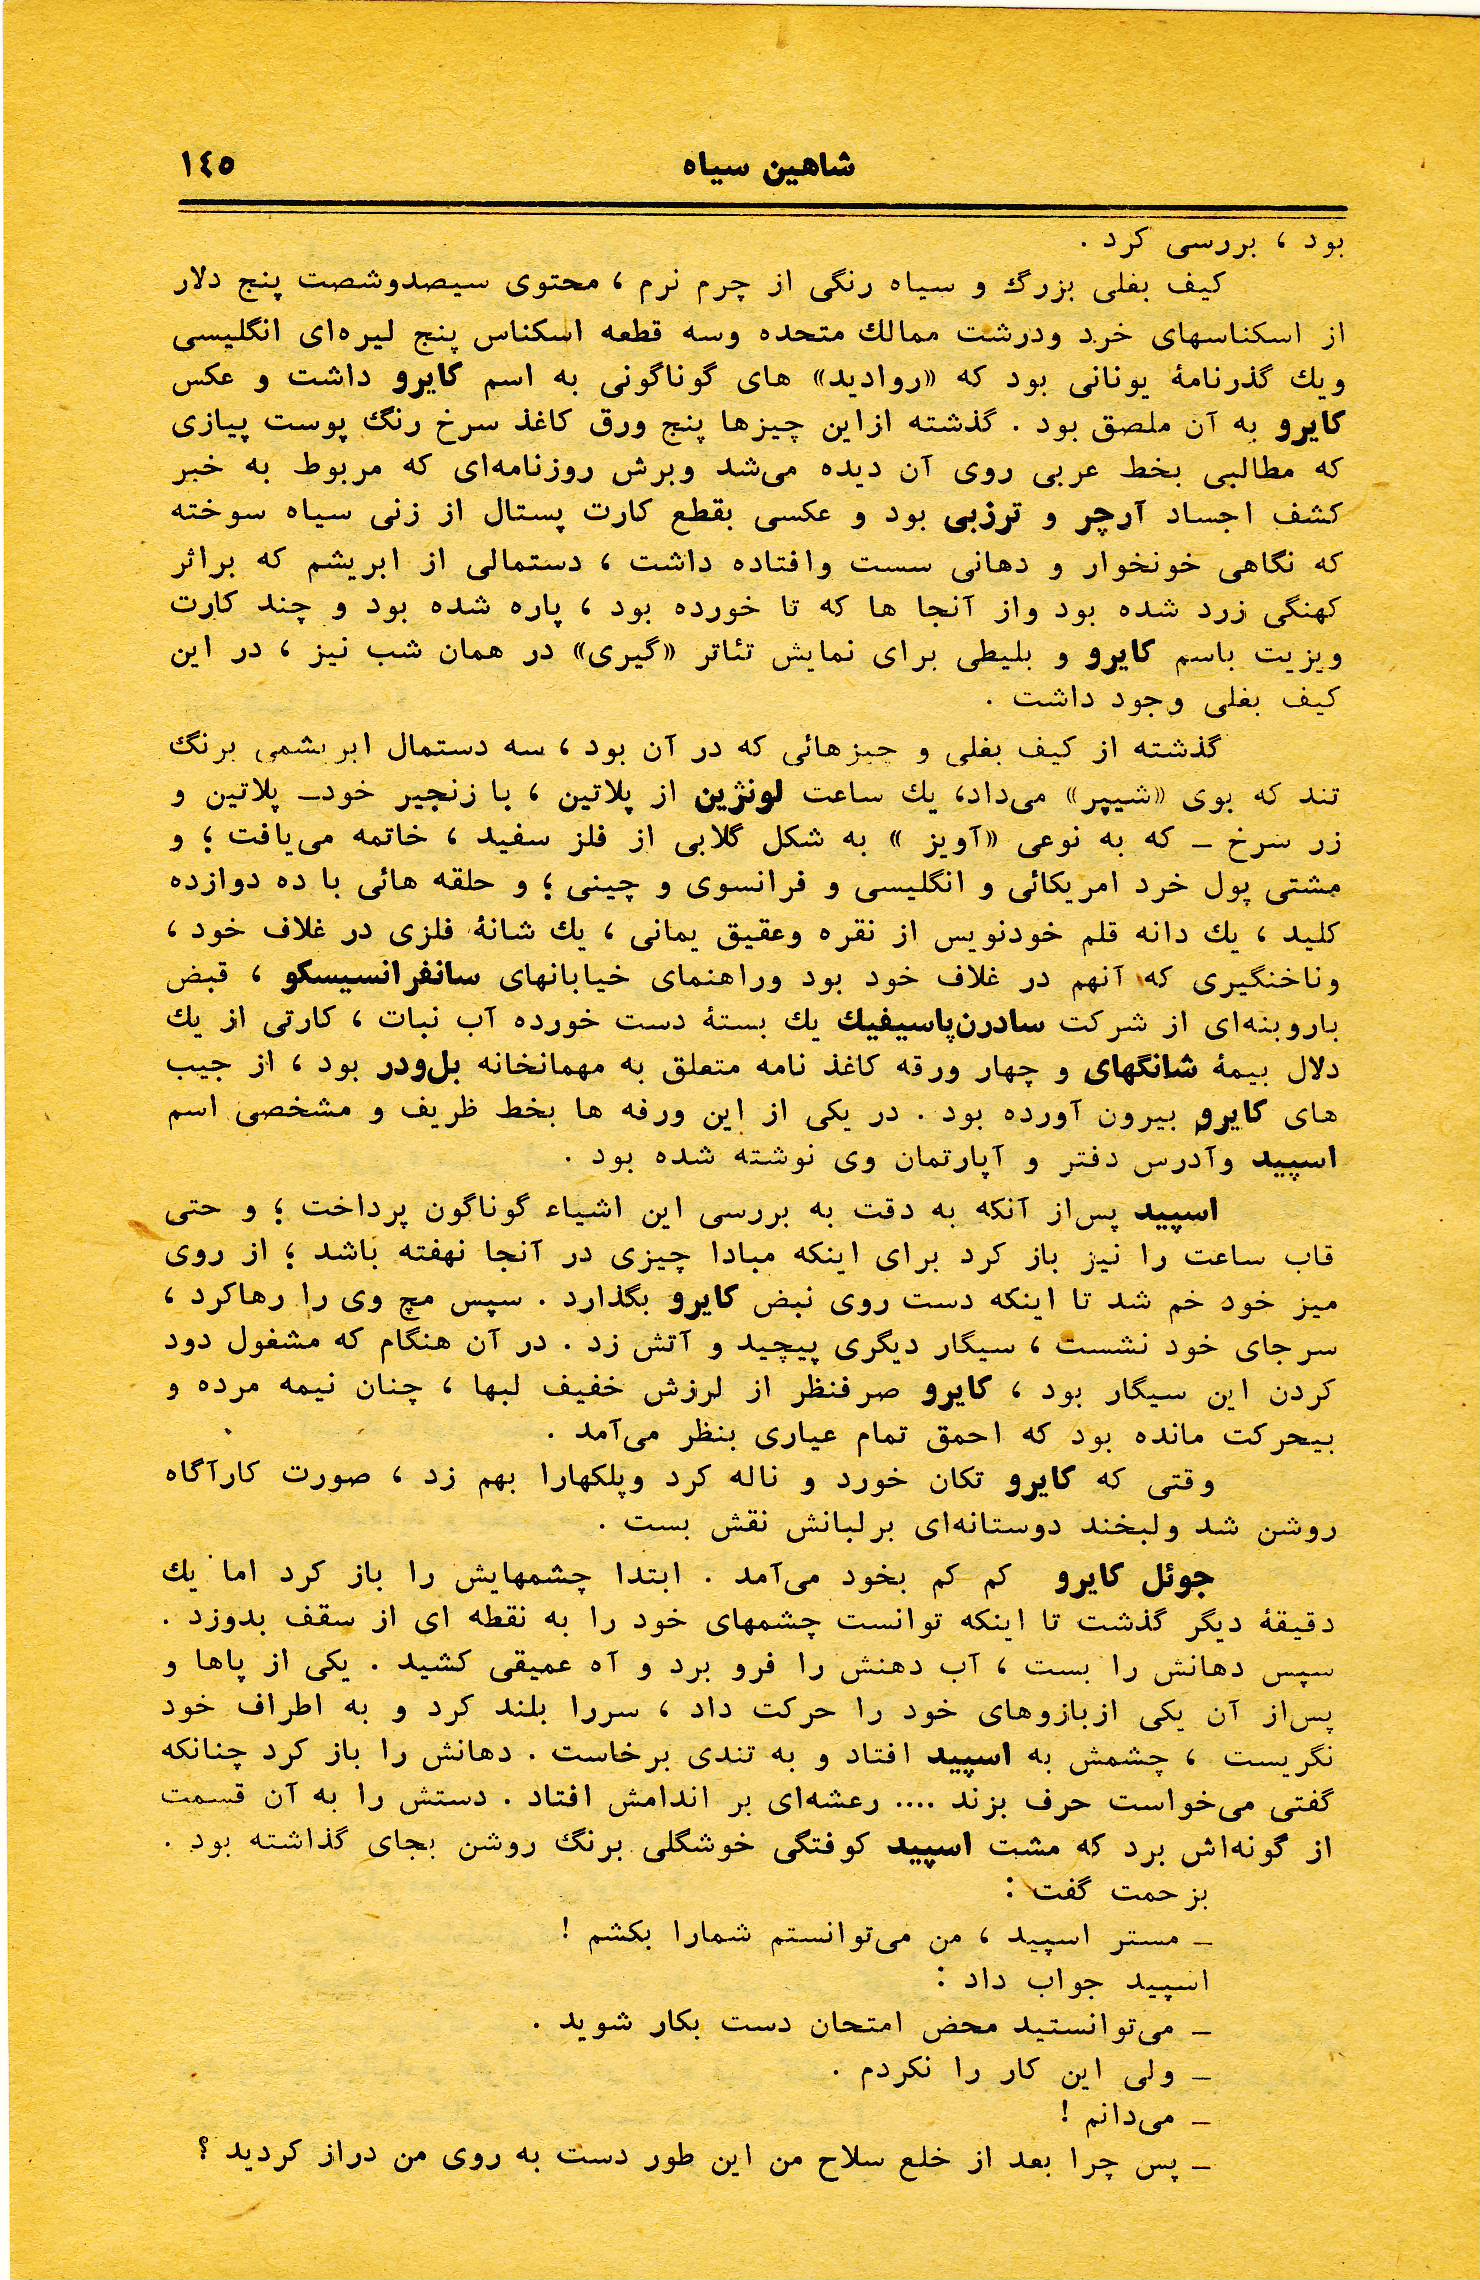 شاهین سیاه
١٤٥
بود ، بررسی کرد .
کیف بغلی بزرگ و سیاه رنگی از چرم نرم ، محتوی سیصدوشصت پنج دلار
از اسکناسهای خرد ودرشت ممالك متحده وسه قطعه اسکناس پنج لیره‌ای انگلیسی
ویك گذرنامهٔ یونانی بود که «روادید» های گوناگونی به اسم کایرو داشت و عکس
کایرو به آن ملصق بود . گذشته ازاین چیزها پنج ورق کاغذ سرخ رنگ پوست پیازی
که مطالبی بخط عربی روی آن دیده می‌شد وبرش روزنامه‌ای که مربوط به خبر
کشف اجساد آرچر و ترزبی بود و عکسی بقطع کارت پستال از زنی سیاه سوخته
که نگاهی خونخوار و دهانی سست وافتاده داشت ، دستمالی از ابریشم که براثر
کهنگی زرد شده بود واز آنجا ها که تا خورده بود ، پاره شده بود و چند کارت
ویزیت باسم کایرو و بلیطی برای نمایش تئاتر «گیری» در همان شب نیز ، در این
کیف بغلی وجود داشت .
گذشته از کیف بغلی و چیزهائی که در آن بود ، سه دستمال ابریشمی برنگ
تند که بوی «شیپر» می‌داد، یك ساعت لونژین از پلاتین ، با زنجیر خود_ پلاتین و
زر سرخ _ که به نوعی «آویز » به شکل گلابی از فلز سفید ، خاتمه می‌یافت ؛ و
مشتی پول خرد امریکائی و انگلیسی و فرانسوی و چینی ؛ و حلقه هائی با ده دوازده
کلید ، یك دانه قلم خودنویس از نقره وعقیق یمانی ، یك شانهٔ فلزی در غلاف خود ،
وناخنگیری که آنهم در غلاف خود بود وراهنمای خیابانهای سانفرانسیسکو ، قبض
باروبنه‌ای از شرکت سادرن‌پاسیفیك یك بستهٔ دست خورده آب نبات ، کارتی از یك
دلال بیمهٔ شانگهای و چهار ورقه کاغذ نامه متعلق به مهمانخانه بل‌ودر بود ، از جیب
های کایرو بیرون آورده بود . در یکی از این ورقه ها بخط ظریف و مشخصی اسم
اسپید وآدرس دفتر و آپارتمان وی نوشته شده بود .
اسپید پس‌از آنکه به دقت به بررسی این اشیاء گوناگون پرداخت ؛ و حتی
قاب ساعت را نیز باز کرد برای اینکه مبادا چیزی در آنجا نهفته باشد ؛ از روی
میز خود خم شد تا اینکه دست روی نبض کایرو بگذارد . سپس مچ وی را رهاکرد ،
سرجای خود نشست ، سیگار دیگری پیچید و آتش زد . در آن هنگام که مشغول دود
کردن این سیگار بود ، کایرو صرفنظر از لرزش خفیف لبها ، چنان نیمه مرده و
بیحرکت مانده بود که احمق تمام عیاری بنظر می‌آمد .
وقتی که کایرو تکان خورد و ناله کرد وپلکهارا بهم زد ، صورت کارآگاه
روشن شد ولبخند دوستانه‌ای برلبانش نقش بست .
جوئل کایرو کم کم بخود می‌آمد . ابتدا چشمهایش را باز کرد اما یك
دقیقهٔ دیگر گذشت تا اینکه توانست چشمهای خود را به نقطه ای از سقف بدوزد .
سپس دهانش را بست ، آب دهنش را فرو برد و آه عمیقی کشید . یکی از پاها و
پس‌از آن یکی ازبازوهای خود را حرکت داد ، سررا بلند کرد و به اطراف خود
نگریست ، چشمش به اسپید افتاد و به تندی برخاست . دهانش را باز کرد چنانکه
گفتی می‌خواست حرف بزند .... رعشه‌ای بر اندامش افتاد . دستش را به آن قسمت
از گونه‌اش برد که مشت اسپید کوفتگی خوشگلی برنگ روشن بجای گذاشته بود .
بزحمت گفت :
_ مستر اسپید ، من می‌توانستم شمارا بکشم !
اسپید جواب داد :
_ می‌توانستید محض امتحان دست بکار شوید .
_ ولی این کار را نکردم .
_ می‌دانم !
_ پس چرا بعد از خلع سلاح من این طور دست به روی من دراز کردید ؟